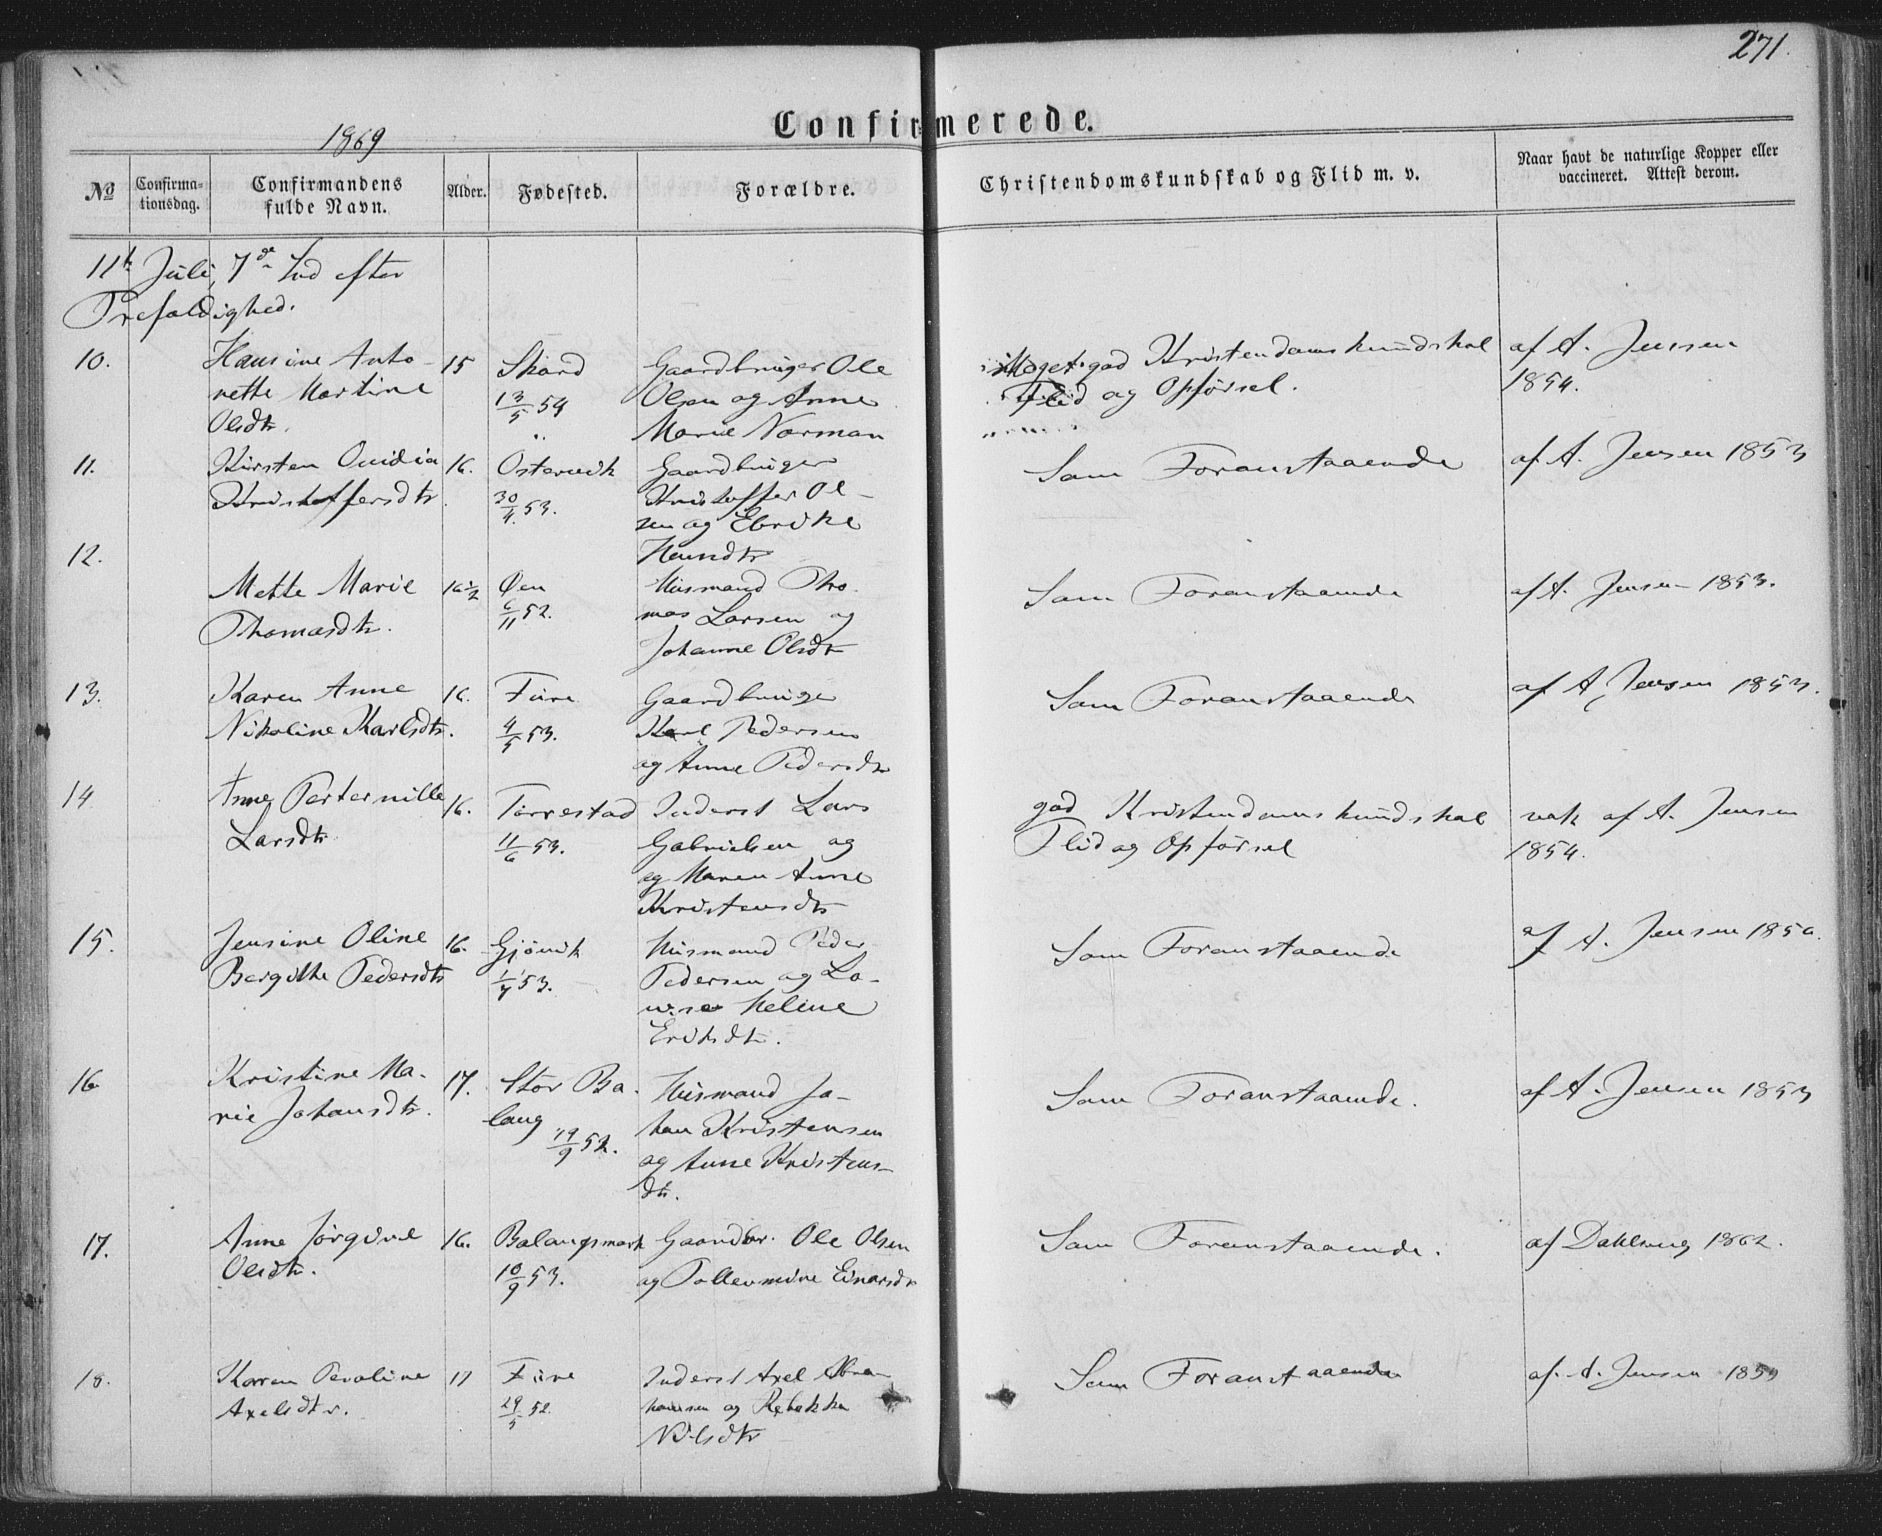 271.
Confirmerede.
1869
No
Confirma-
tionsdag.
Confirmandens
fulde Navn.
Alder.
Fødested.
Forældre.
Christendomskundskab og Flid m. v.
Naar havt de naturlige Kopper eller
vaccineret. Attest derom.
11te Juli, 7de Snd efter
Trefoldighed.
10. Hansine Anto- 15 Skard Gaardbruger Ole Meget god Kristendomskundskab af A. Jensen
nette Martine 13/5 54 Olsen og Anne Flid og Opførsel. 1854.
Olsdtr. Marie Norman
11. Kirsten Ovidia 16. Ostervik Gaardbruger Som Foranstaaende af A. Jensen 1853
Kristoffersdtr 30/4 53. Kristoffer Ol-
sen og
12. 
Mette Marie 16 1/2 Øen Husmand Tho- Som Foranstaaende af A. Jensen 1853.
Thomasdtr. 6/11 52. mas Larsen og
Johanne Olsdtr
13. Karen Anne 16. Fure Gaardbruger Som Foranstaaende af A. Jensen 1853.
Nikoline Karlsdtr. 4/5 53. Karl Pedersen
og Anne Pedersdtr
14 Anne Perternille 16. Torrestad Inderst Lars god Kristendomskundskab vak af A. Jensen
Larsdtr 11/6 53. Gabrielsen og Flid og Opførsel 1854.
og Maren Anne
Kristensdtr
15. Jensine Oline 16. Gjøvik Husmand Peder Som Foranstaaende af A. Jensen
Bergitte Pedersdtr 1/7 53. Pedersen og Lo-
vise Heline
Eriksdtr.
16 Kristine Ma- 17. Stor Ba- Husmand Jo- Som Foranstaaende. af A. Jensen 1853
rie Johansdtr. lang 19/9 52. han Kristensen
og Anne Kristens-
dtr.
17. Anne Jørgine 16. Balangsmark Gaardbr. Ole Olsen Som Foranstaaende. af Dahlwig 1862.
Olsdtr. 10/9 53. og Einarsdtr
18. Karen Peroline 17 Fure Inderst Axel Abra- Som Foranstaaende af A. Jensen 1853
Axelsdtr. 29/5 52. hamsen og Rebekka
Nilsdtr